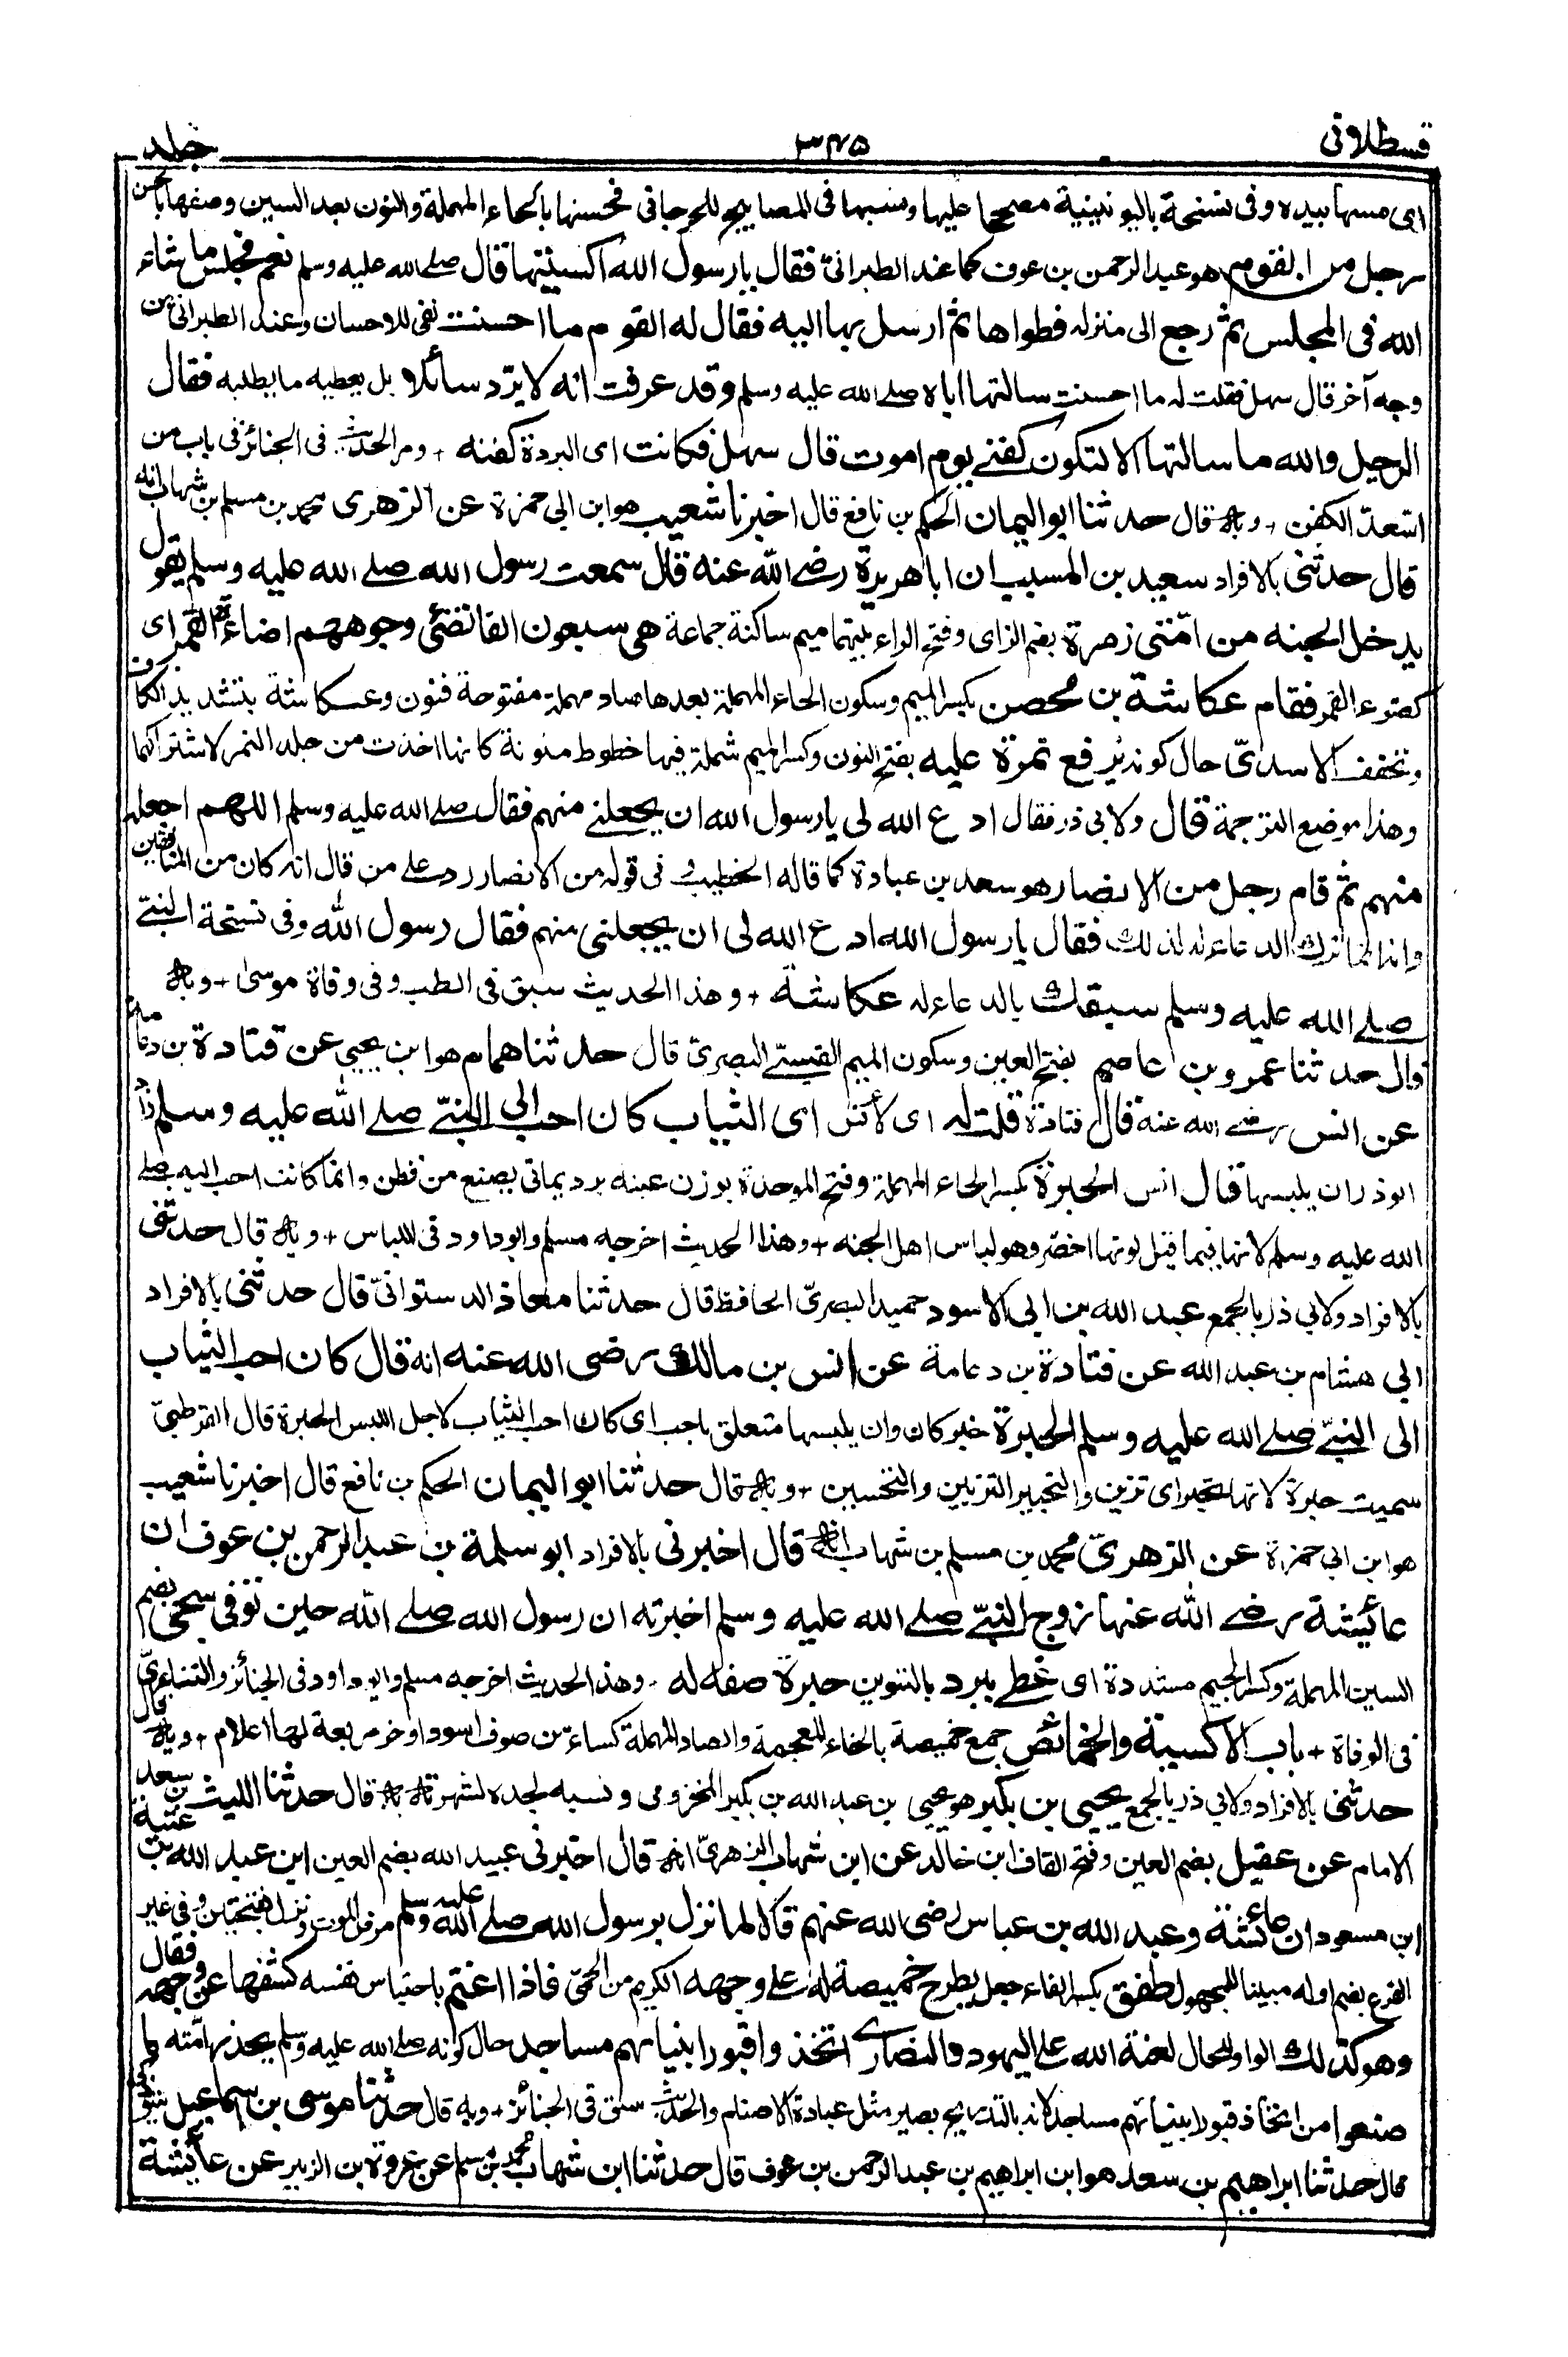 قسطلانی
٣٤٥
جلد
ای مسها بیده وفی نسخة بالیونینیة مصححا علیها ونسبها فی المصابیح للجرجانی فحسنها بالحاء المهملة والنون بعد السین وصفها بالحسن
رجل من القوم هو عبد الرحمن بن عوف کما عند الطبرانی فقال یا رسول الله اکسنیها قال صلے الله علیه وسلم نعم فجلس ما شاء
الله فی المجلس ثم رجع الی منزله فطواها ثم ارسل بها الیه فقال له القوم ما احسنت نفی للاحسان وعند الطبرانی من
وجه آخر قال سهل فقلت له ما احسنت سالتها ایاه صلے الله علیه وسلم وقد عرفت انه لا یرد سائلا بل یعطیه ما یطلبه فقال
الرجل والله ما سالتها الا لتکون کفنے یوم اموت قال سهل فکانت ای البردة کفنه + ومر الحدیث فی الجنائز فی باب من
استعد الکفن + وبه قال حدثنا ابو الیمان الحکم بن نافع قال اخبرنا شعیب هو ابن ابی حمزة عن الزهری محمد بن مسلم بن شهاب انه
قال حدثنی بالافراد سعید بن المسیب ان ابا هریرة رضے الله عنه قال سمعت رسول الله صلے الله علیه وسلم یقول
یدخل الجنه من امتی زمرة بضم الزای وفتح الراء بینهما میم ساکنة جماعة هی سبعون الفا تضئ وجوههم اضاءة القمر ای
کضوء القمر فقام عکاشة بن محصن بکسر المیم وسکون الحاء المهملة بعدها صاد مهملة مفتوحة فنون وعکاشة بتشدید الکاف
وتخفف الاسدی حال کونه یرفع نمرة علیه بفتح النون وکسر المیم شملة فیها خطوط ملونة کانها اخذت من جلد النمر لاشتراکهما
وهذا موضع الترجمة قال ولابی ذر فقال ادع الله لی یا رسول الله ان یجعلنے منهم فقال صلے الله علیه وسلم اللهم اجعله
منهم ثم قام رجل من الانصار هو سعد بن عبادة کما قاله الخطیب فی قوله من الانصار رد علے من قال انه کان من المنافقین
وانه انما ترک الدعاء له لذلک فقال یا رسول الله ادع الله لی ان یجعلنی منهم فقال رسول الله وفی نسخة النبے
صلے الله علیه وسلم سبقک بالدعاء له عکاشة + وهذا الحدیث سبق فی الطب وفی وفاة موسی + وبه
قال حدثنا عمرو بن عاصم بفتح العین وسکون المیم القیسے البصری قال حدثنا همام هو ابن یحیی عن قتادة بن دعامة
عن انس رضے الله عنه قال قتادة قلت له ای لانس ای الثیاب کان احب الی النبے صلے الله علیه وسلم زاد
ابو ذر ان یلبسها قال انس الحبرة بکسر الحاء المهملة وفتح الموحدة بوزن عنبة برد یمانی یصنع من قطن وانما کانت احب الیه صلے
الله علیه وسلم لانها فیما قیل لونها اخضر وهو لباس اهل الجنه + وهذا الحدیث اخرجه مسلم وابو داود فی اللباس + وبه قال حدثنی
بالافراد ولابی ذر بالجمع عبد الله بن ابی الاسود حمید البصری الحافظ قال حدثنا معاذ الدستوائی قال حدثنی بالافراد
ابی هشام بن عبد الله عن قتادة بن دعامة عن انس بن مالک رضی الله عنه انه قال کان احب الثیاب
الی النبے صلے الله علیه وسلم الحبرة خبر کان وان یلبسها متعلق باحب ای کان احب الثیاب لاجل اللبس الحبرة قال القرطبی
سمیت حبرة لانها تحبر ای تزین والتحبیر التزیین والتحسین + وبه قال حدثنا ابو الیمان الحکم بن نافع قال اخبرنا شعیب
هو ابن ابی حمزة عن الزهری محمد بن مسلم بن شهاب انه قال اخبرنی بالافراد ابو سلمة بن عبد الرحمن بن عوف ان
عائشة رضے الله عنها زوج النبے صلے الله علیه وسلم اخبرته ان رسول الله صلے الله حین توفی سجی بضم
السین المهملة وکسر الجیم مشددة ای غطے ببرد بالتنوین حبرة صفة له وهذا الحدیث اخرجه مسلم وابو داود فی الجنائز والنسائی
فی الوفاة + باب الاکسیة والخمائص جمع خمیصة بالخاء المعجمة والصاد المهملة کساء من صوف اسود او خز مربعة لها اعلام + وبه قال
حدثنی بالافراد ولابی ذر بالجمع یحیی بن بکیر هو یحیی بن عبد الله بن بکیر المخزومی ونسبه لجده لشهرته به قال حدثنا اللیث بن سعد
الامام عن عقیل بضم العین وفتح القاف ابن خالد عن ابن شهاب الزهری انه قال اخبرنی عبید الله بضم العین ابن عبد الله بن عتبة
ابن مسعود ان عائشة وعبد الله بن عباس رضی الله عنهم قالا لما نزل برسول الله صلے الله علیه وسلم مرض الموت ونزل بفتحتین وفی غیر
الفرع بضم اوله مبینا للمجهول طفق بکسر الفاء جعل یطرح خمیصة له علے وجهه الکریم من الحمی فاذا اغتم باحتباس نفسه کشفها عن وجهه فقال
وهو کذلک الواو للحال لعنة الله علے الیهود والنصاری اتخذوا قبور انبیائهم مساجد حال کونه صلے الله علیه وسلم یحذر امته ما
صنعوا من اتخاذ قبور انبیائهم مساجد لانه بالتدریج یصیر مثل عبادة الاصنام والحدیث سبق فی الجنائز + وبه قال حدثنا موسی بن اسماعیل
قال حدثنا ابراهیم بن سعد هو ابن ابراهیم بن عبد الرحمن بن عوف قال حدثنا ابن شهاب محمد بن مسلم عن عروة بن الزبیر عن عائشة